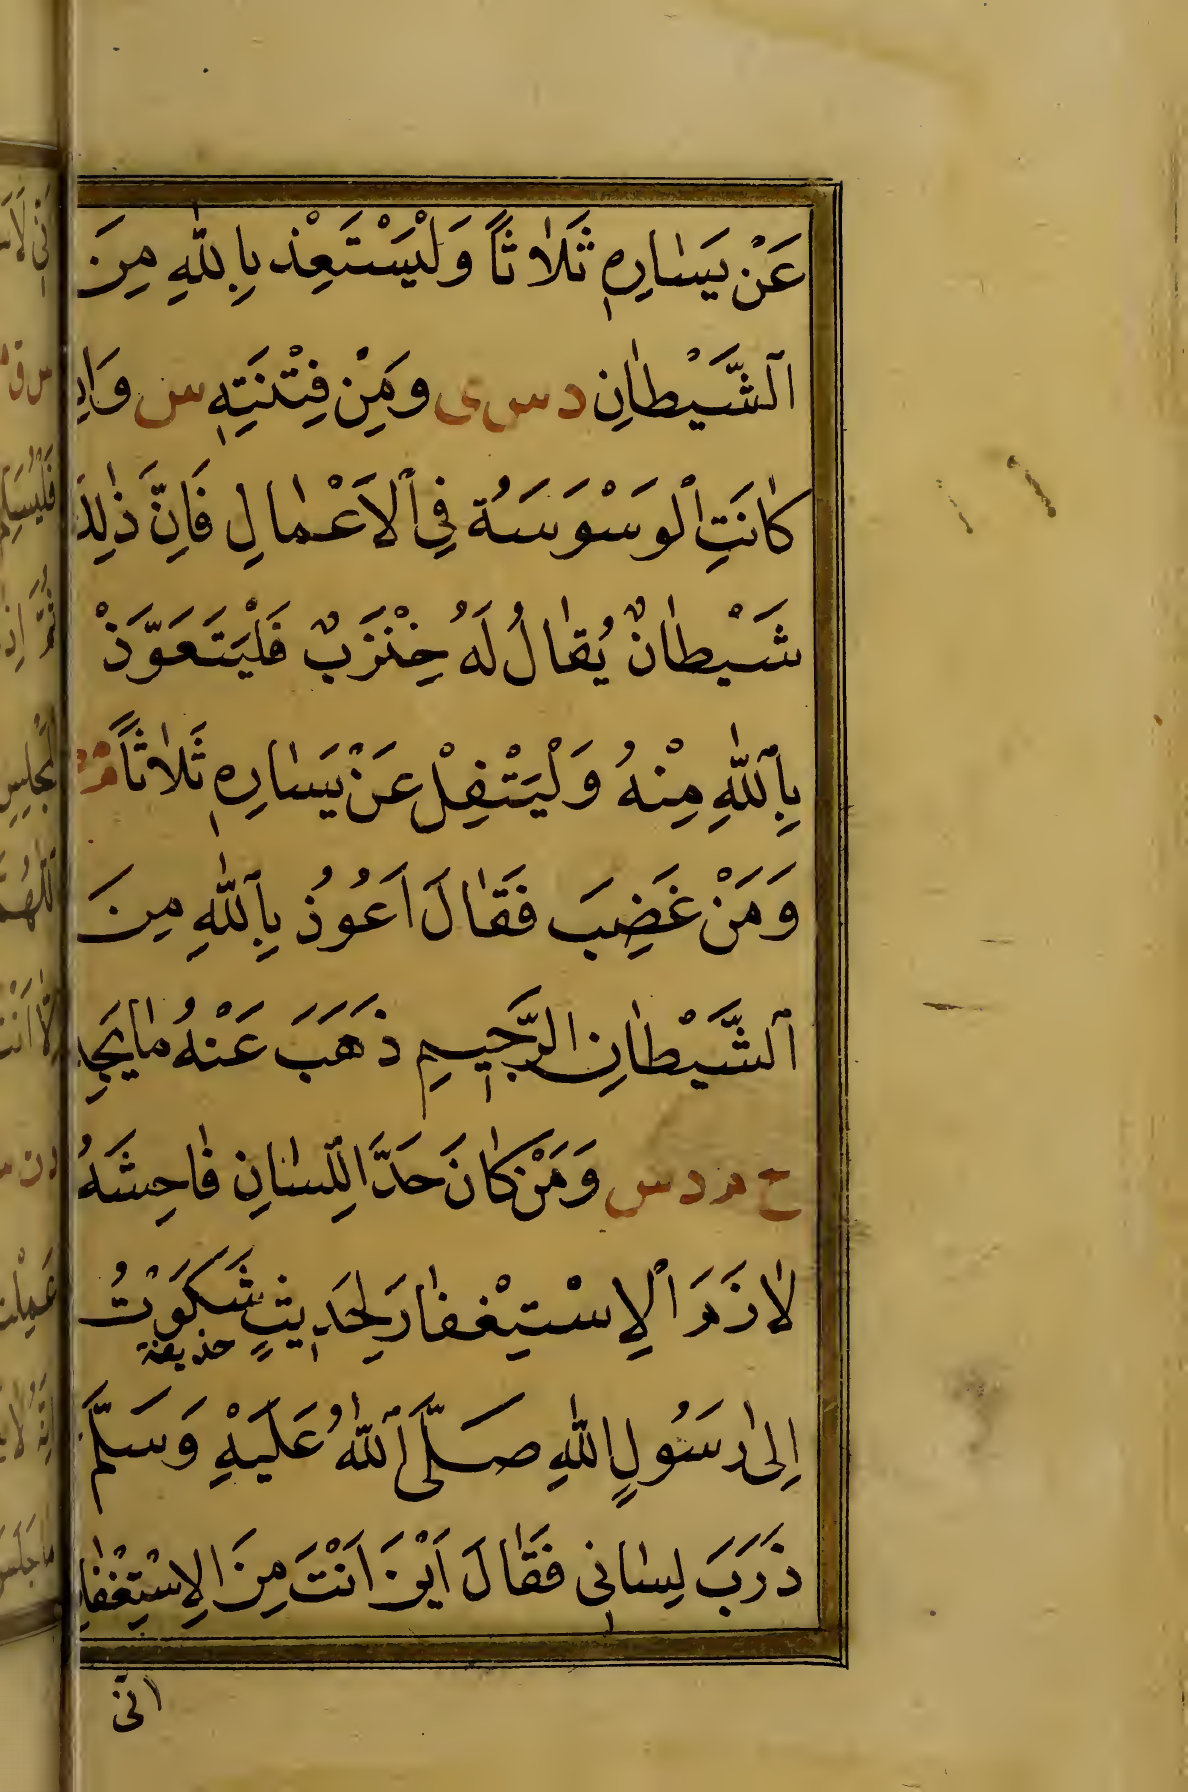 عَنْ يَسَارِهِ ثَلَاثًا وَلْيَسْتَعِذْ بِاللّٰهِ مِنَ
اَلشَّيْطَانِ د س ى وَمِنْ فِتْنَتِهِ س وَاِن
كَانَتِ الْوَسْوَسَةُ فِي الْاَعْمَالِ فَاِنَّ ذٰلِكَ
شَيْطَانٌ يُقَالُ لَهُ خِنْزَبٌ فَلْيَتَعَوَّذْ
بِاللّٰهِ مِنْهُ وَلْيَتْفِلْ عَنْ يَسَارِهِ ثَلَاثًا م
وَمَنْ غَضِبَ فَقَالَ اَعُوذُ بِاللّٰهِ مِنَ
اَلشَّيْطَانِ الرَّجِيمِ ذَهَبَ عَنْهُ مَا يَجِد
خ م د س وَمَنْ كَانَ حَدَّ اللِّسَانِ فَاحِشَهُ
لَازَمَ الْاِسْتِغْفَارَ لِحَدِيثِ شَكَوْتُ
حذيفة
اِلٰى رَسُولِ اللّٰهِ صَلَّى اللّٰهُ عَلَيْهِ وَسَلَّمَ
ذَرَبَ لِسَانِي فَقَالَ اَيْنَ اَنْتَ مِنَ الْاِسْتِغْفَارِ
اِنّى